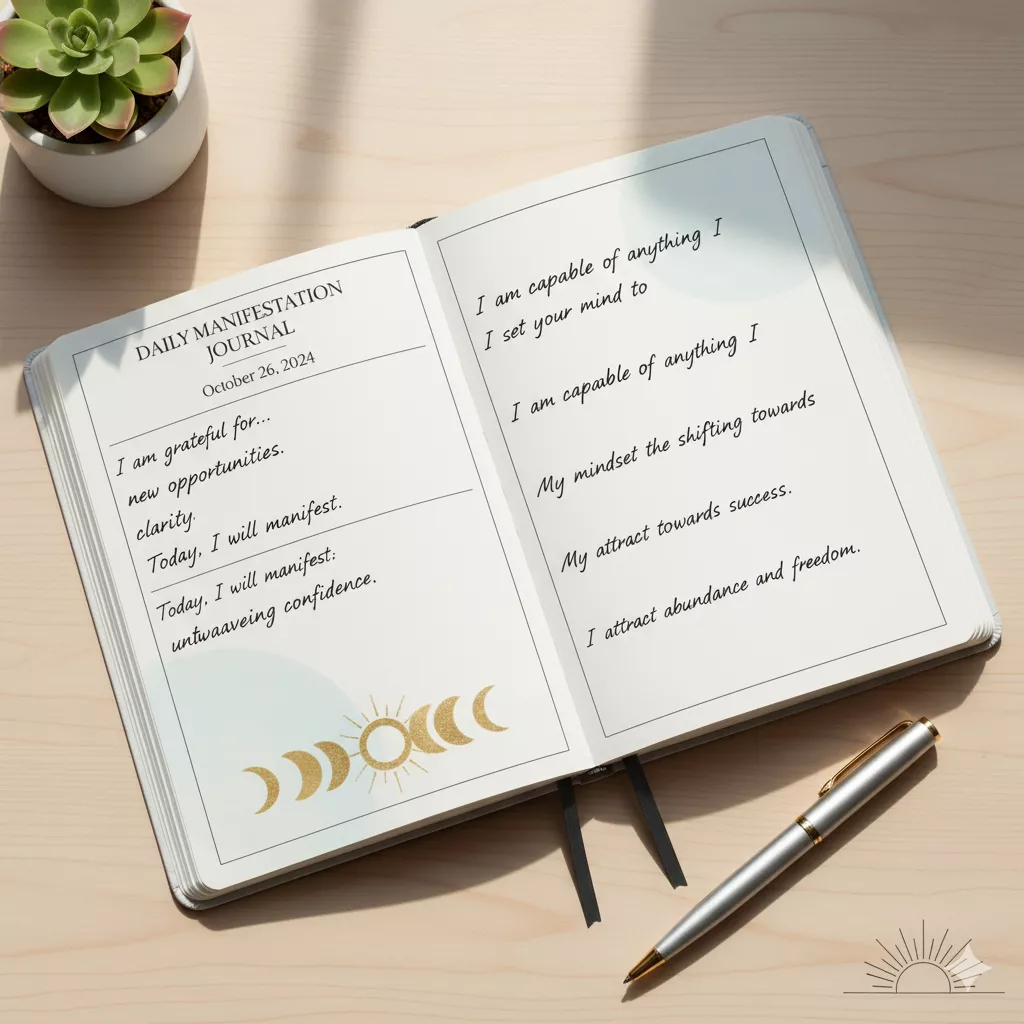 DAILY MANIFESTATION
JOURNAL
October 26, 2024
I am grateful for...
new opportunities.
clarity.
Today, I will manifest.
Today, I will manifest:
untwaaveing confidence.
I am capable of anything I
I set your mind to
I am capable of anything I
My mindset the shifting towards
My attract towards success.
I attract abundance and freedom.